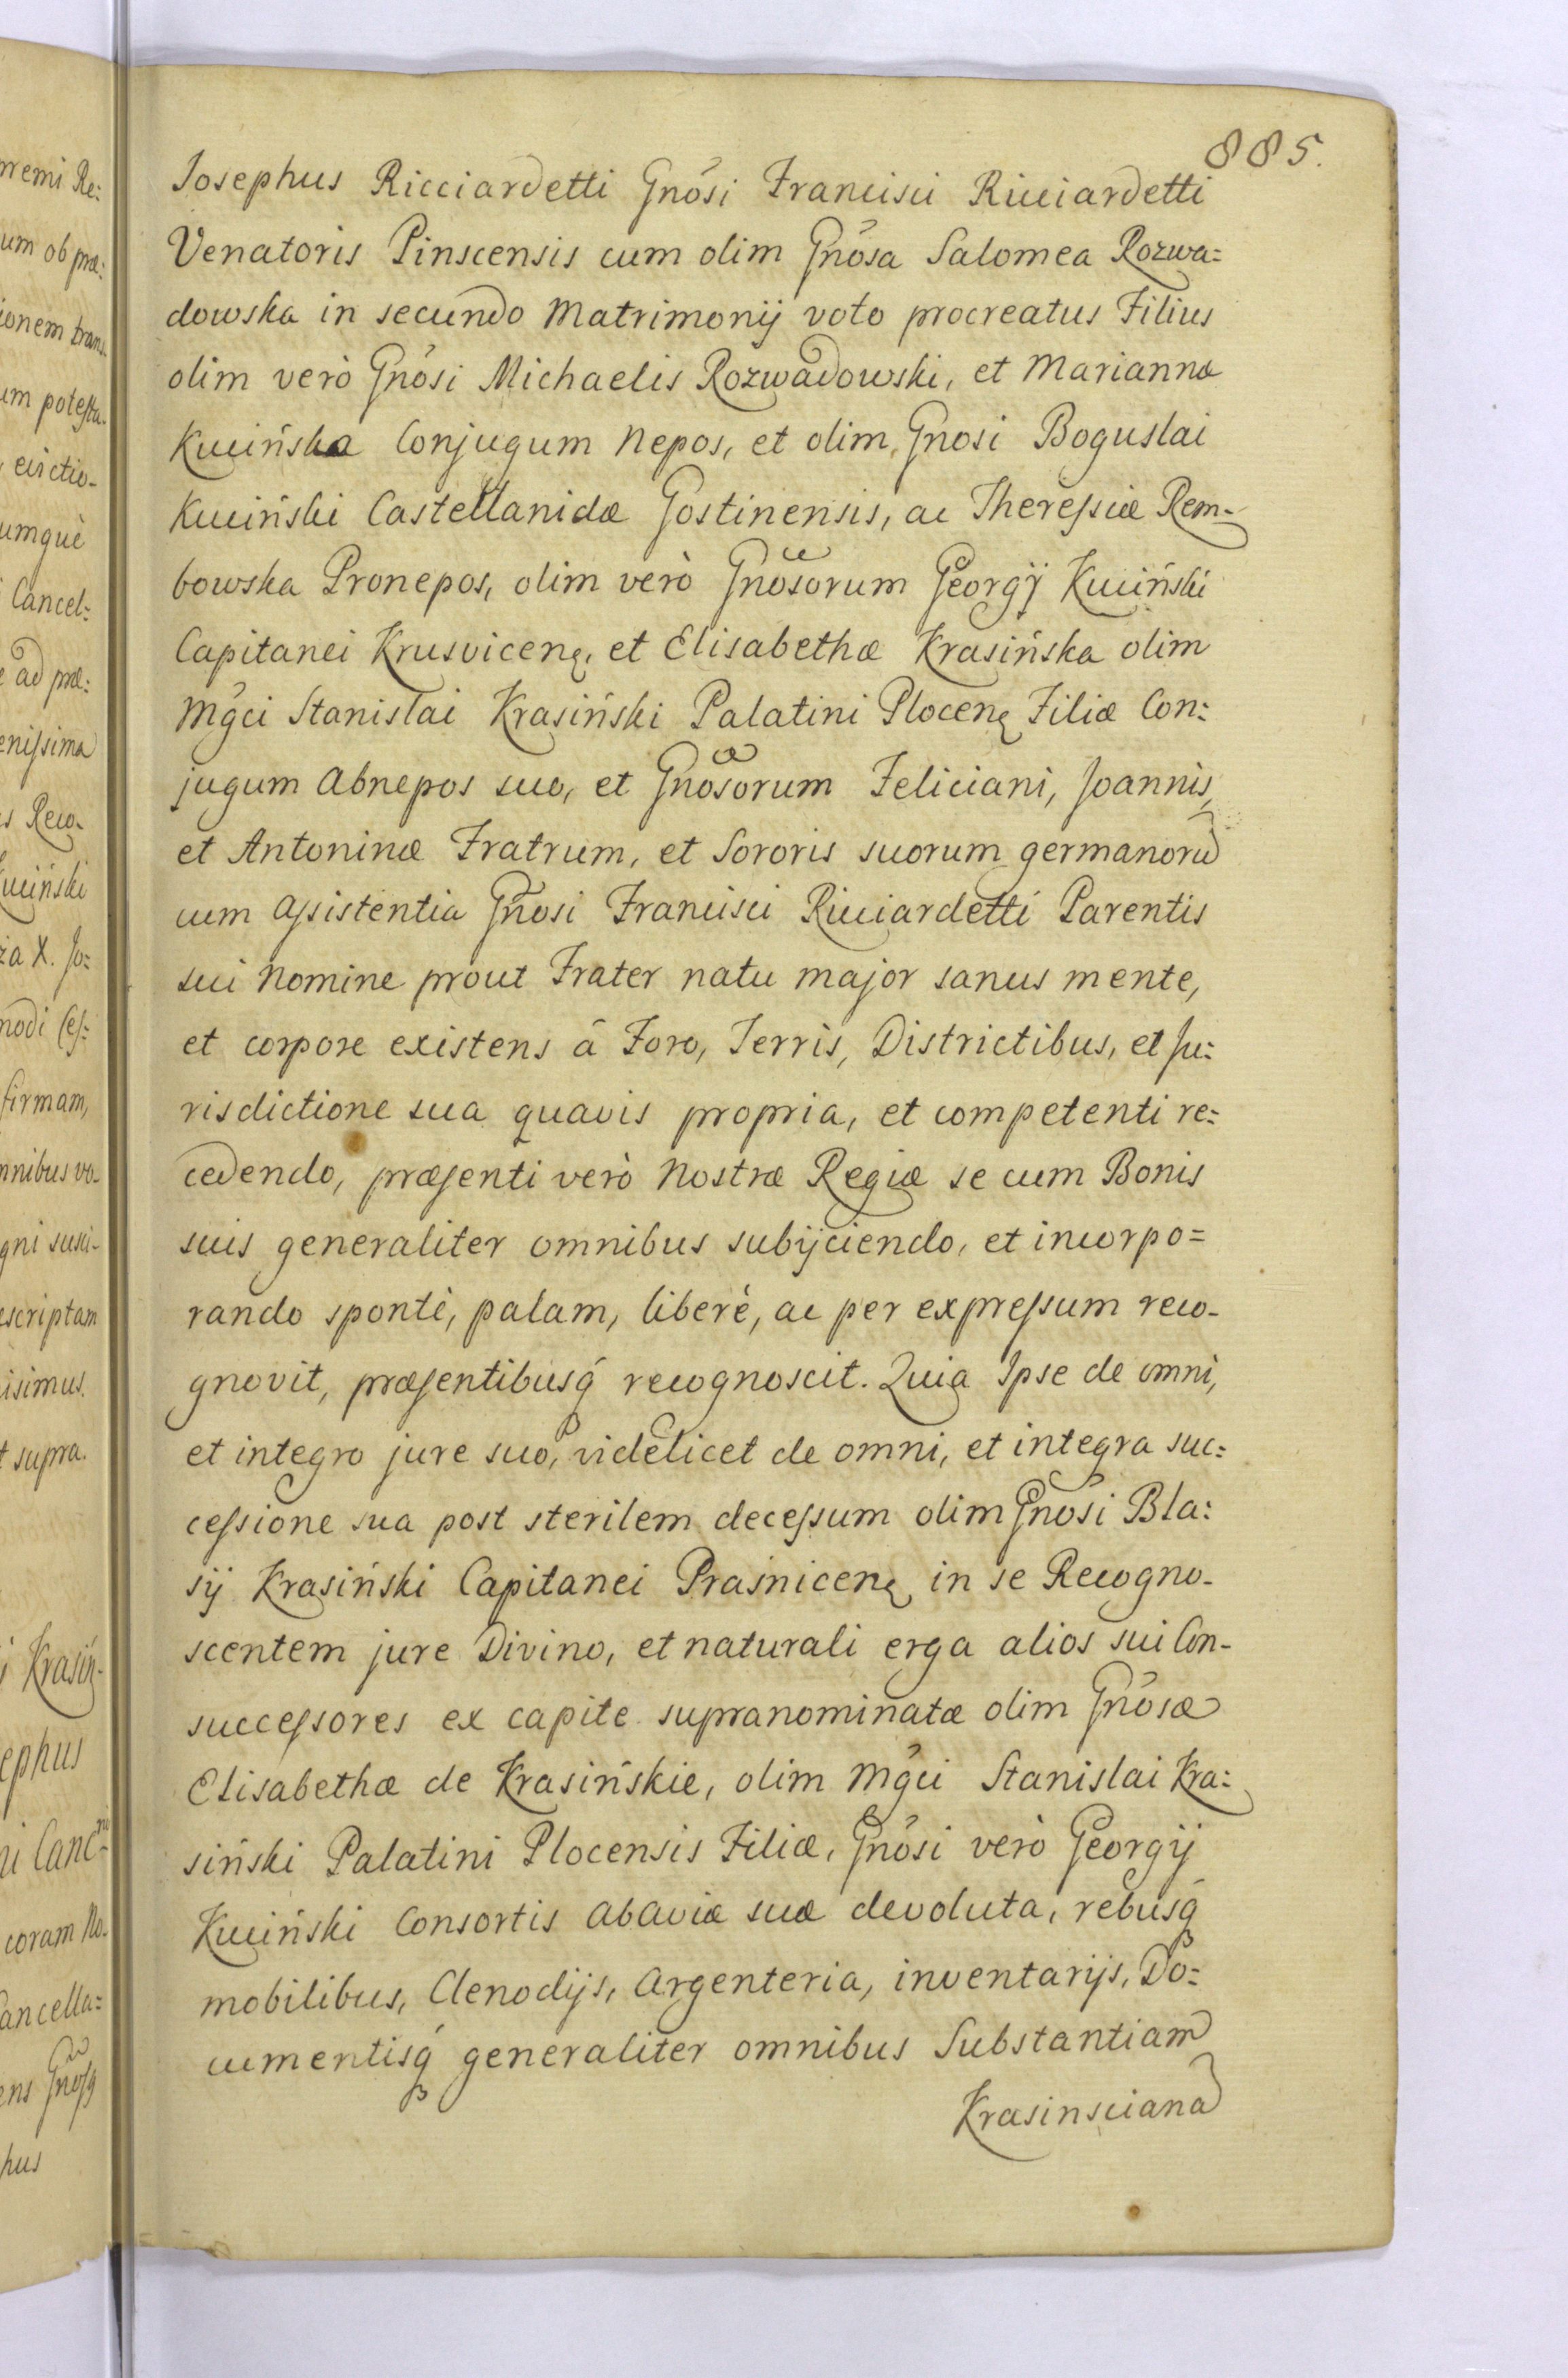 885.
Josephus Ricciardetti Gnosi Francisci Ricciardetti
Venatoris Pinscensis cum olim Gnosa Salomea Rozwa=
dowska in secundo Matrimonij voto procreatus Filius
olim verò Gnosi Michaelis Rozwadowski, et Marianna
Kucińska Conjugum Nepos, et olim Gnosi Boguslai
Kuciński Castellanidæ Gostinensis, ac Theressiæ Rem-
bowska Pronepos, olim verò Gnosorum Georgij Kuciński
Capitanei Krusvicenę, et Elisabethæ Krasińska olim
Mgci Stanislai Krasiński Palatini Plocenę Filiæ Con:
jugum Abnepos suo, et Gnosorum Feliciani, Joannis,
et Antoninæ Fratrum, et Sororis suorum germanorũ
cum Assistentia Gnosi Francisci Ricciardetti Parentis
sui Nomine prout Frater natu major sanus mente,
et corpore existens â Foro, Terris, Districtibus, et Ju:
risdictione sua quavis propria, et competenti re:
cedendo, præsenti verò Nostræ Regiæ se cum Bonis
suis generaliter omnibus subijciendo, et incorpo=
rando spontè, palam, liberè, ac per expressum reco-
gnovit, præsentibusq́ recognoscit. Quia Ipse de omni,
et integro jure suo, videlicet de omni, et integra suc:
cessione sua post sterilem decessum olim Gnosi Bla:
sij Krasiński Capitanei Prasnicenę in se Recogno-
scentem jure Divino, et naturali erga alios sui Con-
successores ex capite supranominatæ olim Gnosæ
Elisabethæ de Krasińskie, olim Mgci Stanislai Kra:
siński Palatini Plocensis Filiæ, Gnosi verò Georgij
Kuciński Consortis Abaviæ suæ devoluta, rebusq́
mobilibus, Clenodijs, Argenteria, inventarijs, Do:
cumentisq́ generaliter omnibus Substantiam
Krasinsciana